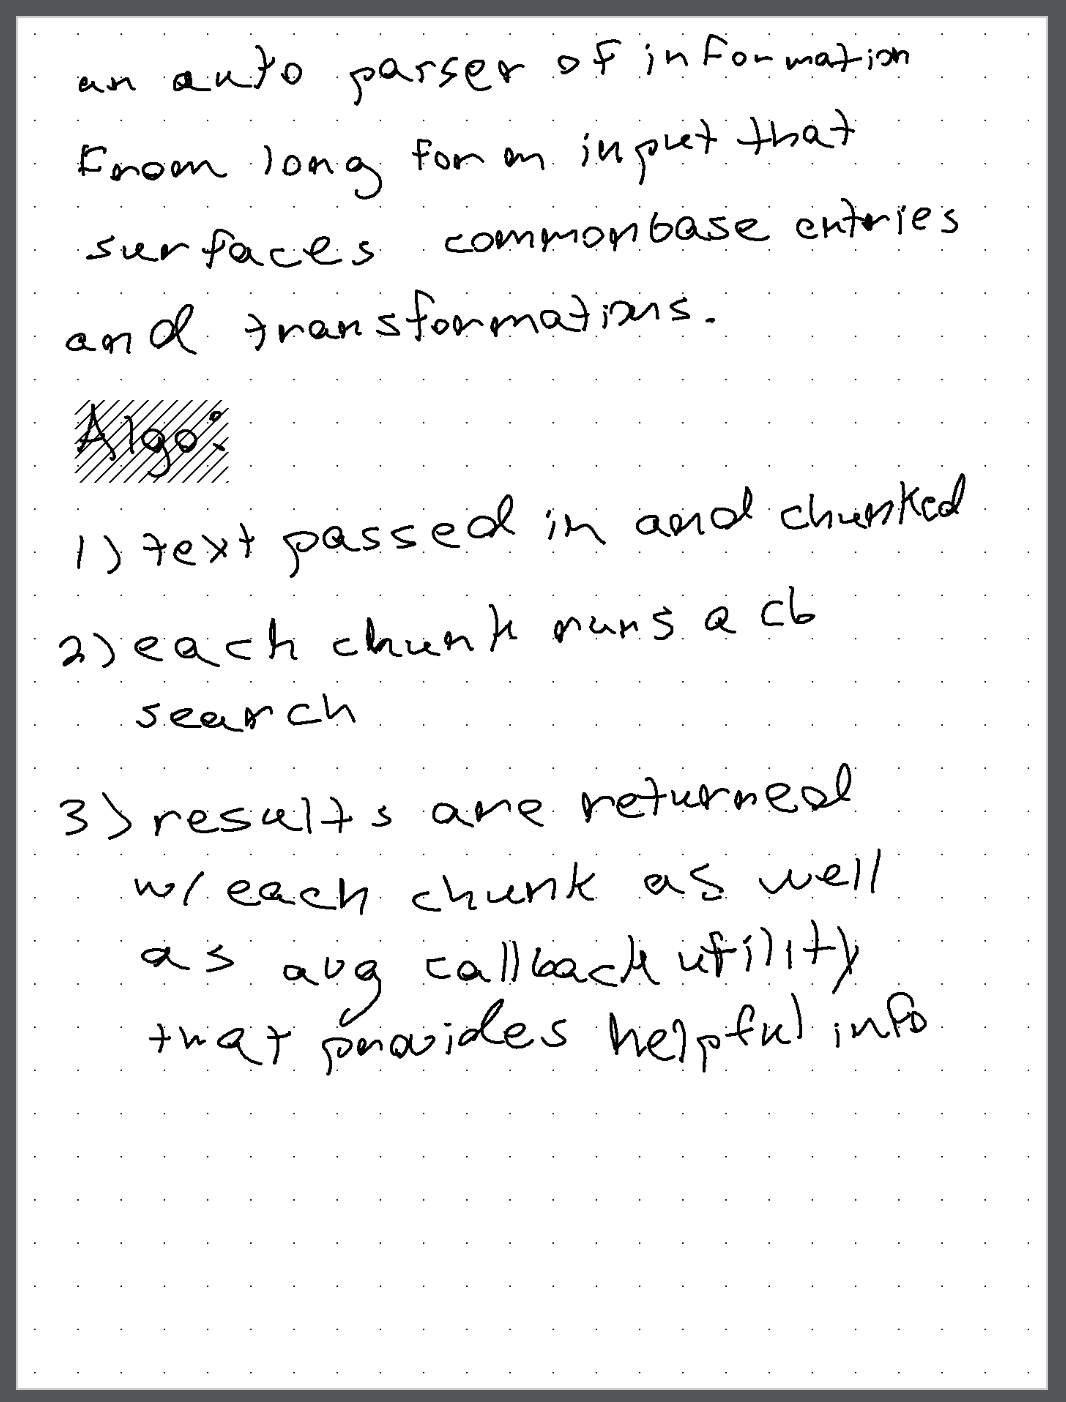 an auto parser of information
From long form input that
surfaces commonbase entries
and transformations.
Algo:
1) text passed in and chunked
2) each chunk runs a cb
search
3) results are returned
w/ each chunk as well
as avg callback utility
that provides helpful info